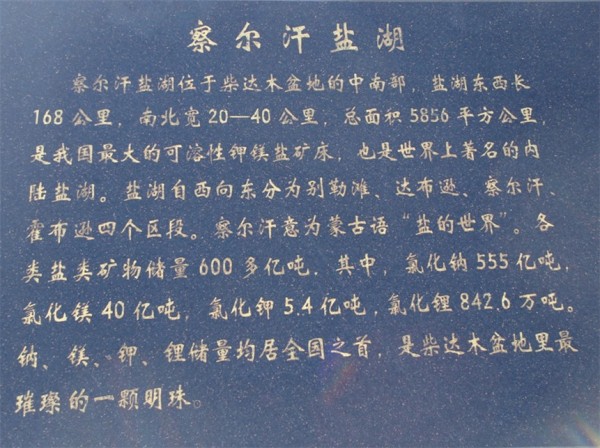 察尔汗盐湖
察尔汗盐湖位于柴达木盆地的中南部，盐湖东西长
168公里，南北宽20—40公里，总面积5856平方公里，
是我国最大的可溶性钾镁盐矿床，也是世界上著名的内
陆盐湖。盐湖自西向东分为别勒滩、达布逊、察尔汗、
霍布逊四个区段。察尔汗意为蒙古语“盐的世界”。各
类盐类矿物储量600多亿吨．其中，氯化钠555亿吨，
氯化镁40亿吨，氯化钾5.4亿吨，氯化锂842.6万吨。
钠、镁、钾、锂储量均居全国之首，是柴达木盆地里最
璀璨的一颗明珠。